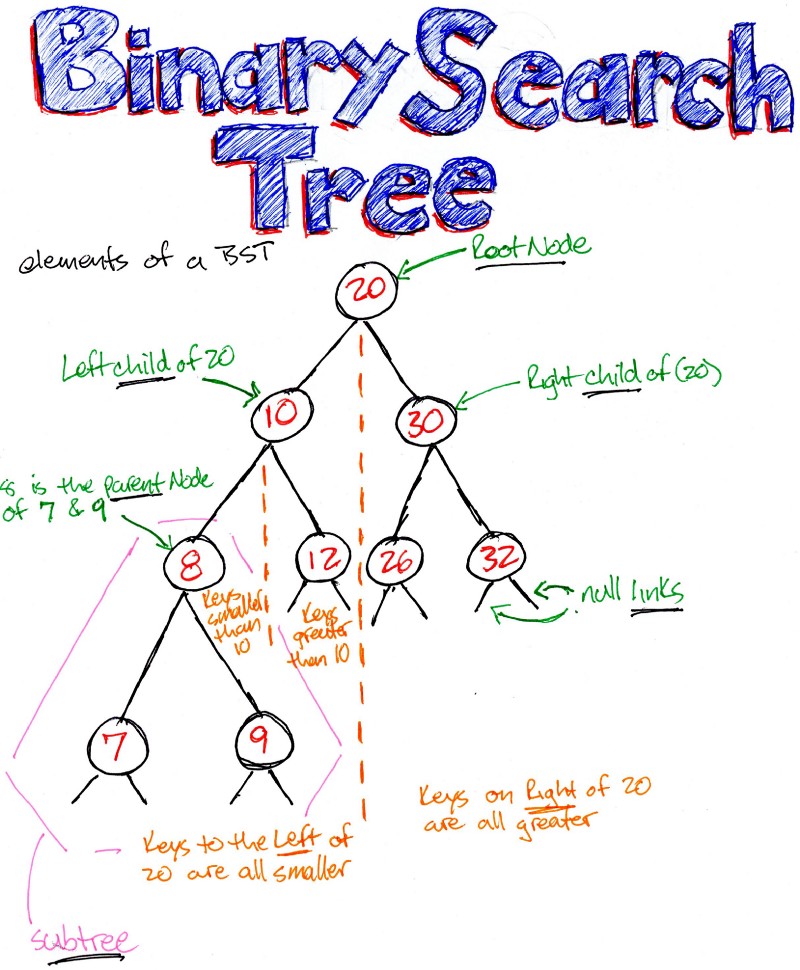 Binary Search
Tree
elements of a BST
Root Node
20
Left child of 20
Right child of (20)
10
30
8 is the parent Node
of 7 & 9
8
12
26
32
null links
Keys
smaller
than
10
Keys
greater
than 10
7
9
Keys on Right of 20
are all greater
Keys to the Left of
20 are all smaller
subtree